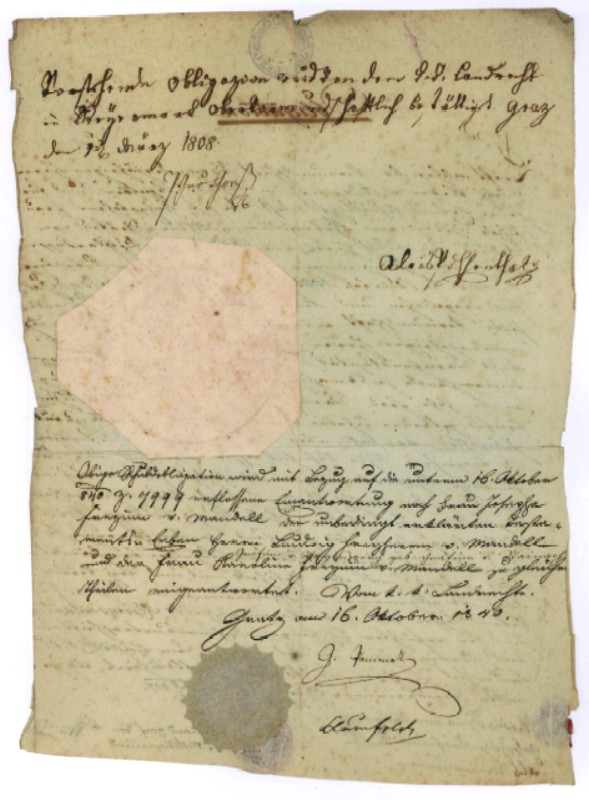 Vorstehende Obligazion wird von dem k.k. Landrecht
in Steyermark obervormundschaftlich bestättigt Graz
den März 1808.
Obige Schuldobligation wird mit Bezug auf die unterm 16. Oktober
840 Z. 7999 erflossene Einantwortung nach Frau Josepha
Freyinn v. Mandell den unbedingt erklärten Testa-
ments Erben Herrn Ludwig Freyherrn v. Mandell
und der Frau Karoline Freyinn v. Mandell zu gleichen
Theilen eingeantwortet. Vom k. k. Landrechte.
Gratz am 16. Oktober 1840.
Blumfeld